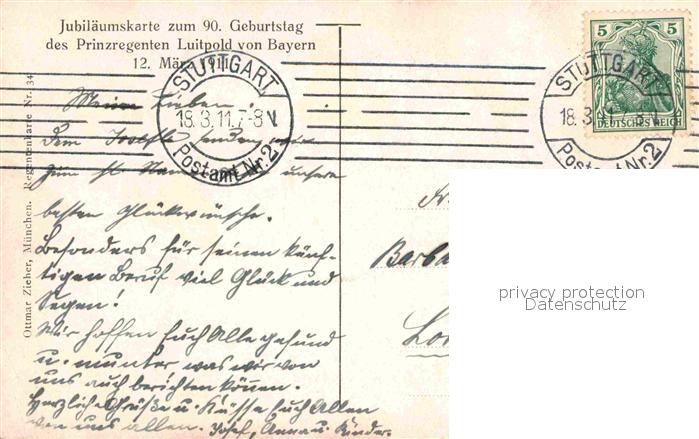 Jubiläumskarte zum 90. Geburtstag
des Prinzregenten Luitpold von Bayern
12. März 1911.
STUTTGART
18.3.11.7-8V.
Postamt Nr.2
5 5
DEUTSCHES REICH
STUTTGART
18.3.11.
Postamt Nr.2
Ottmar Zieher, München. Regentenkarte Nr. 34
Meine Lieben!
Dem senden wir
zum unsere
besten Glückwünsche.
Besonders für seinen künf-
tigen Beruf viel Glück und
Segen!
Wir hoffen Euch Alle gesund
u. munter was wir von
uns auch berichten können.
Herzliche Grüße u. Küsse Euch Allen
von uns allen. Josef, Anna u. Kinder.
Fr
Barba
Lo
privacy protection
Datenschutz